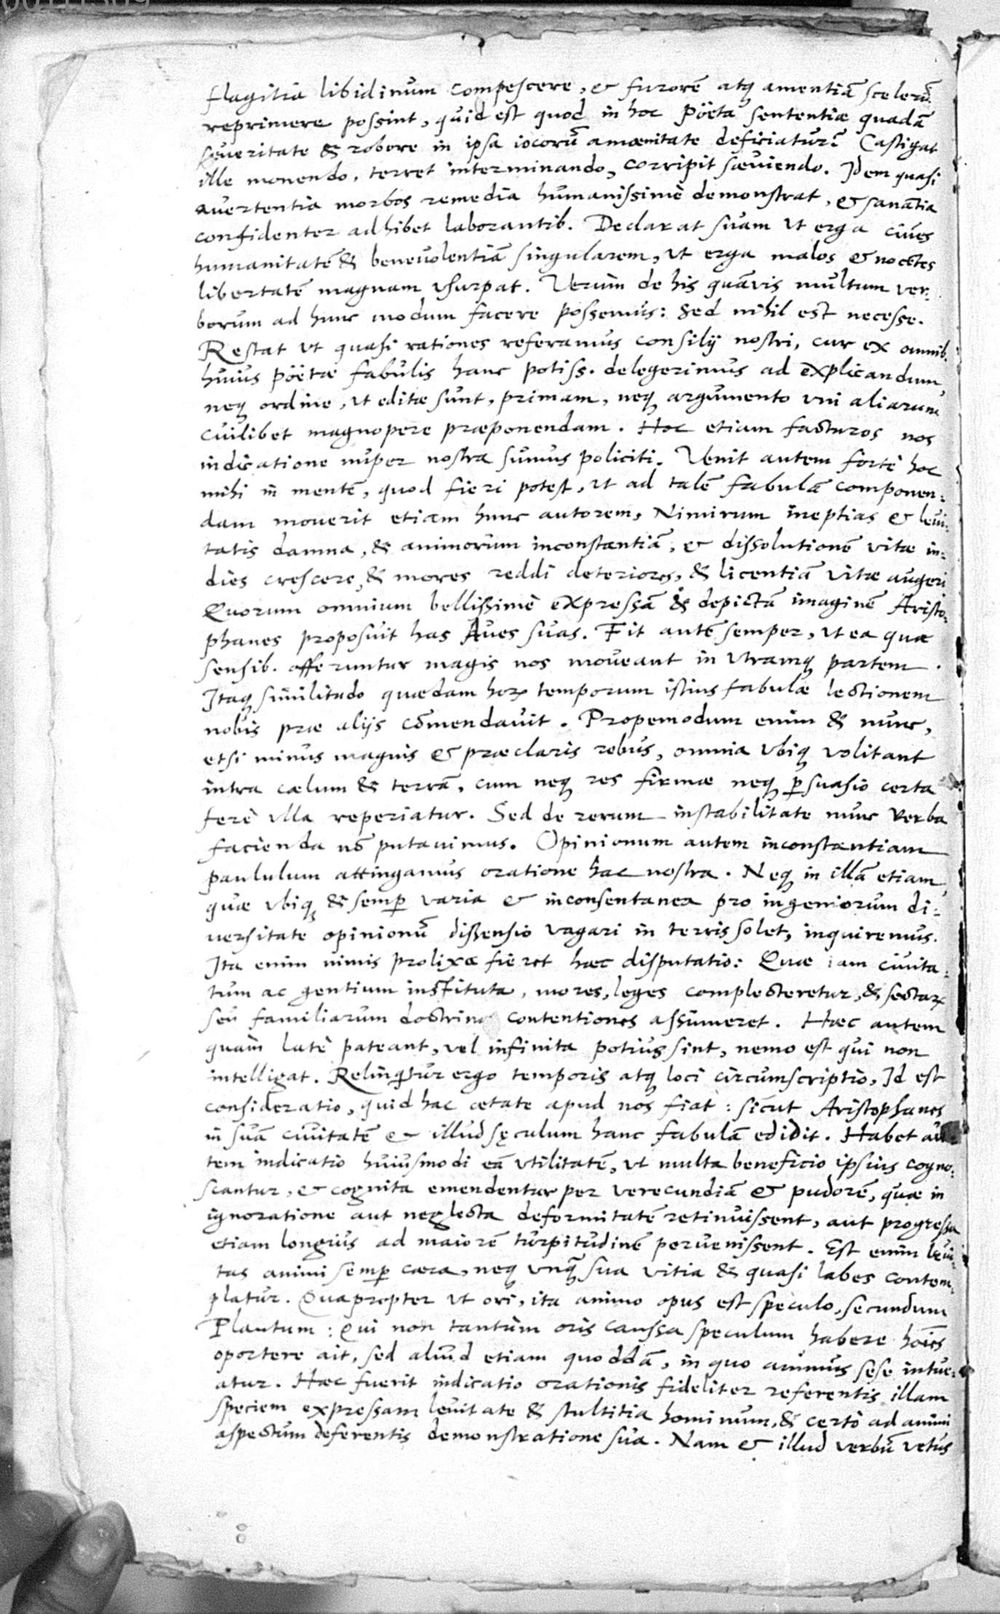 flagitia libidinum compescere, & furorē atq amentiā scelerū
reprimere possint, quid est quod in hoc Poëta sententiæ quadā
seueritate & robore in ipsa iocorū amœnitate desideratur? Castigat
ille monendo, terret interminando, corripit sæuiendo. Idem quasi
auertentia morbos remedia humanissimè demonstrat, & sanātia
confidenter adhibet laborantib. Declarat suam ut erga ciues
humanitatē & beneuolentiā singularem, ut erga malos & nocētes
libertatē magnam usurpat. Verùm de his quāuis multum ver-
borum ad hunc modum facere possemus: Sed nihil est necesse.
Restat ut quasi rationes referamus consilij nostri, cur ex omnib.
huius Poëtæ fabulis hanc potiss. delegerimus ad explicandum
neq ordine, ut editæ sunt, primam, neq argumento uni aliarum
cuilibet magnopere præponendam. Hoc etiam facturos nos
indicatione nuper nostra sumus policiti. Venit autem fortè hoc
mihi in mentē, quod fieri potest, ut ad talē fabulā componen-
dam mouerit etiam hunc autorem, Nimirum ineptias & leui-
tatis damna, & animorum inconstantiā, & dissolutionē vitæ in-
dies crescere, & mores reddi deteriores, & licentiā vitæ augeri
Quorum omnium bellissimè expressā & depictā imaginē Aristo-
phanes proposuit has Aues suas. Fit autē semper, ut ea quæ
sensib. offeruntur magis nos moueant in utramq partem.
Itaq similitudo quædam horum temporum istius fabulæ lectionem
nobis præ alijs cōmendauit. Propemodum enim & nunc,
etsi minus magnis & præclaris rebus, omnia ubiq volitant
intra cælum & terrā, cum neq res firmæ neq psuasio certa
ferè ulla reperiatur. Sed de rerum instabilitate nunc verba
facienda nō putauimus. Opinionum autem inconstantiam
paululum attingamus oratione hac nostra. Neq in illā etiam,
quæ ubiq & semp varia & inconsentanea pro ingeniorum di-
uersitate opinionū dissensio vagari in terris solet, inquiremus.
Ita enim nimis prolixa fieret hæc disputatio: Quæ iam ciuita-
tum ac gentium instituta, mores, leges complecteretur, & sectarum
seu familiarum doctrinæ contentiones assumeret. Hæc autem
quàm latè pateant, vel infinita potius sint, nemo est qui non
intelligat. Relinquitur ergo temporis atq loci circumscriptio, Id est
consideratio, quid hac ætate apud nos fiat: sicut Aristophanes
in suā ciuitatē & illud sęculum hanc fabulā edidit. Habet au-
tem indicatio huiusmodi eā utilitatē, ut multa beneficio ipsius cogno-
scantur, & cognita emendentur per verecundiā & pudorē, quæ in
ignoratione aut neglecta deformitatē retinuissent, aut progressa
etiam longius ad maiorē turpitudinē peruenissent. Est enim leui-
tas animi semp cæca, neq unquā sua vitia & quasi labes contem-
platur. Quapropter ut ori, ita animo opus est speculo, secundum
Plautum: Qui non tantùm oris caussa speculum habere hoīes
oportere ait, sed aliud etiam quoddā, in quo animus sese intue-
atur. Hæc fuerit indicatio orationis fideliter referentis illam
speciem expressam leuitate & stultitia hominum, & certò ad animi
aspectum deferentis demonstratione sua. Nam & illud verbū vetus